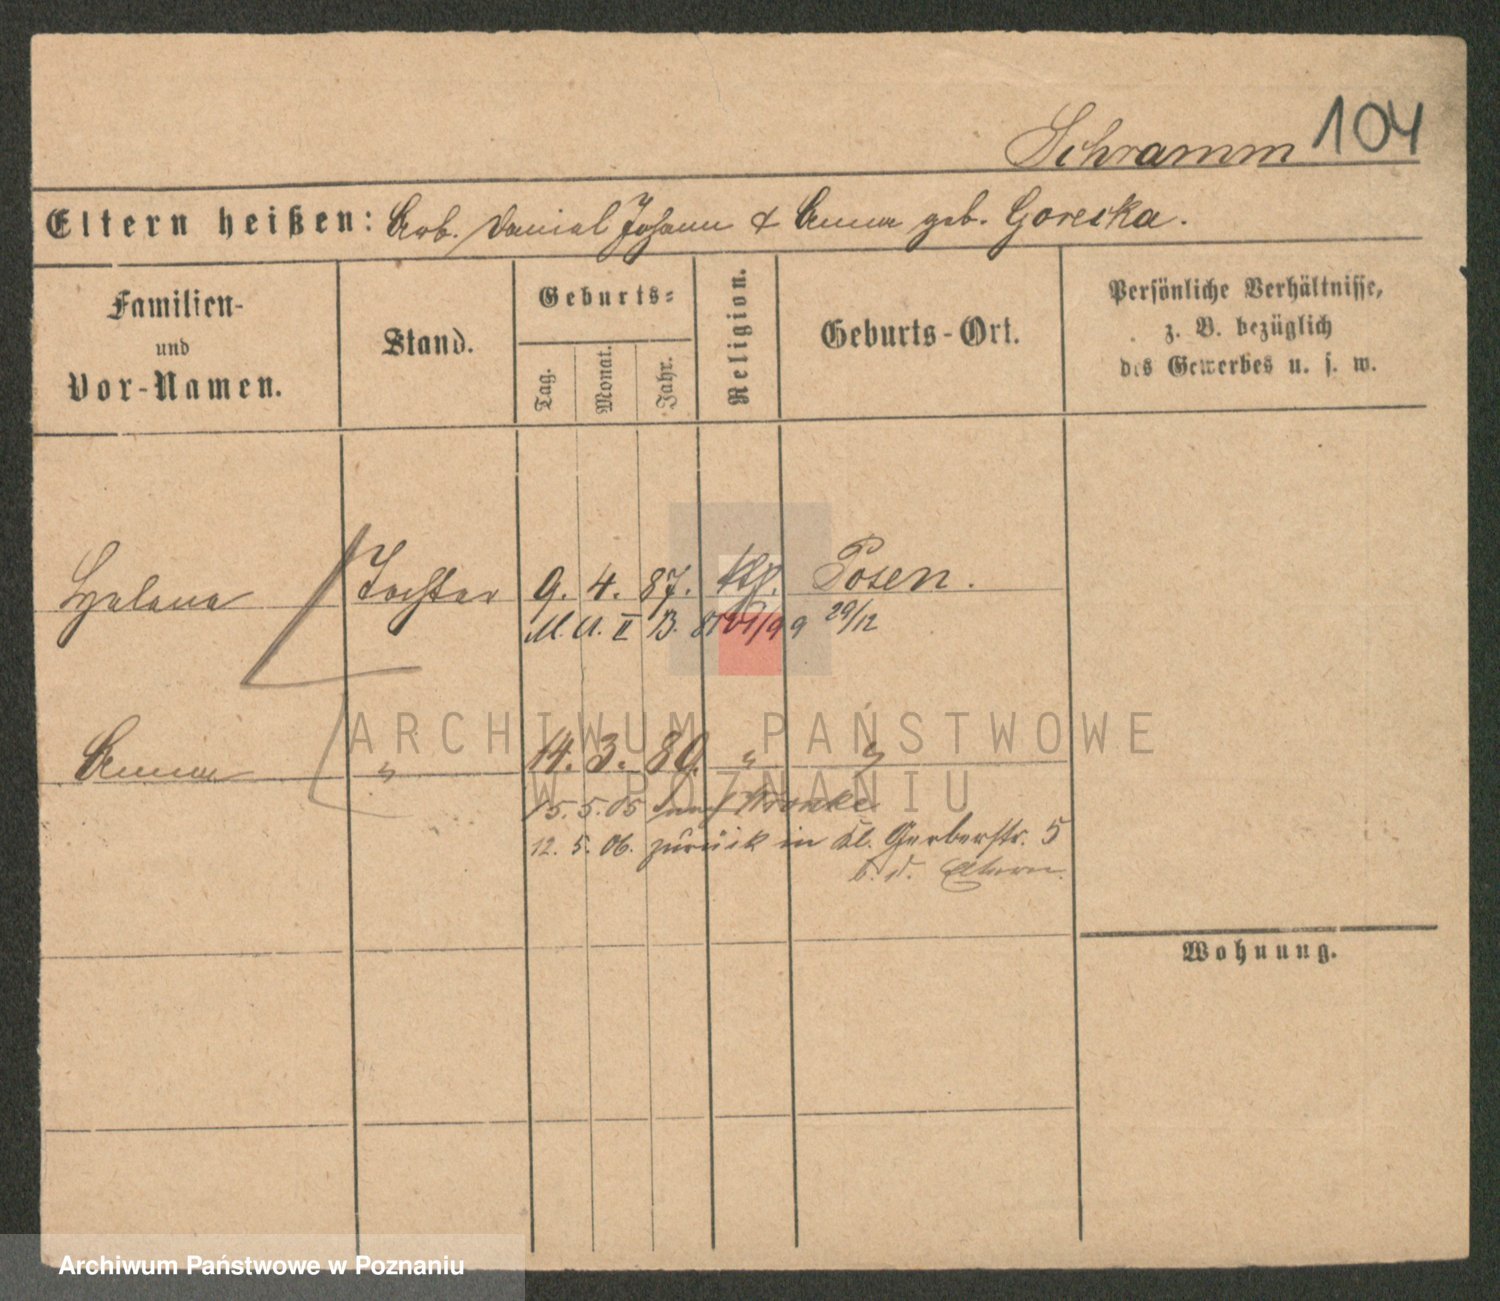 Schramm 104
Eltern heißen: Arb. Daniel Johann & Anna geb. Goreska.
Familien-
und
Vor-Namen.
Stand.
Geburts-
Tag.
Monat.
Jahr.
Religion.
Geburts-Ort.
Persönliche Verhältnisse,
z. B. bezüglich
des Gewerbes u. s. w.
Helena Tochter 9. 4. 87. Posen.
M. A. II B. 29/12
Anna " 14. 3. 80. " "
15. 5. 05 Wronke
12. 5. 06. zurück in Kl. Gerberstr. 5
b. d. Eltern.
Wohnung.
ARCHIWUM PAŃSTWOWE
W POZNANIU
Archiwum Państwowe w Poznaniu